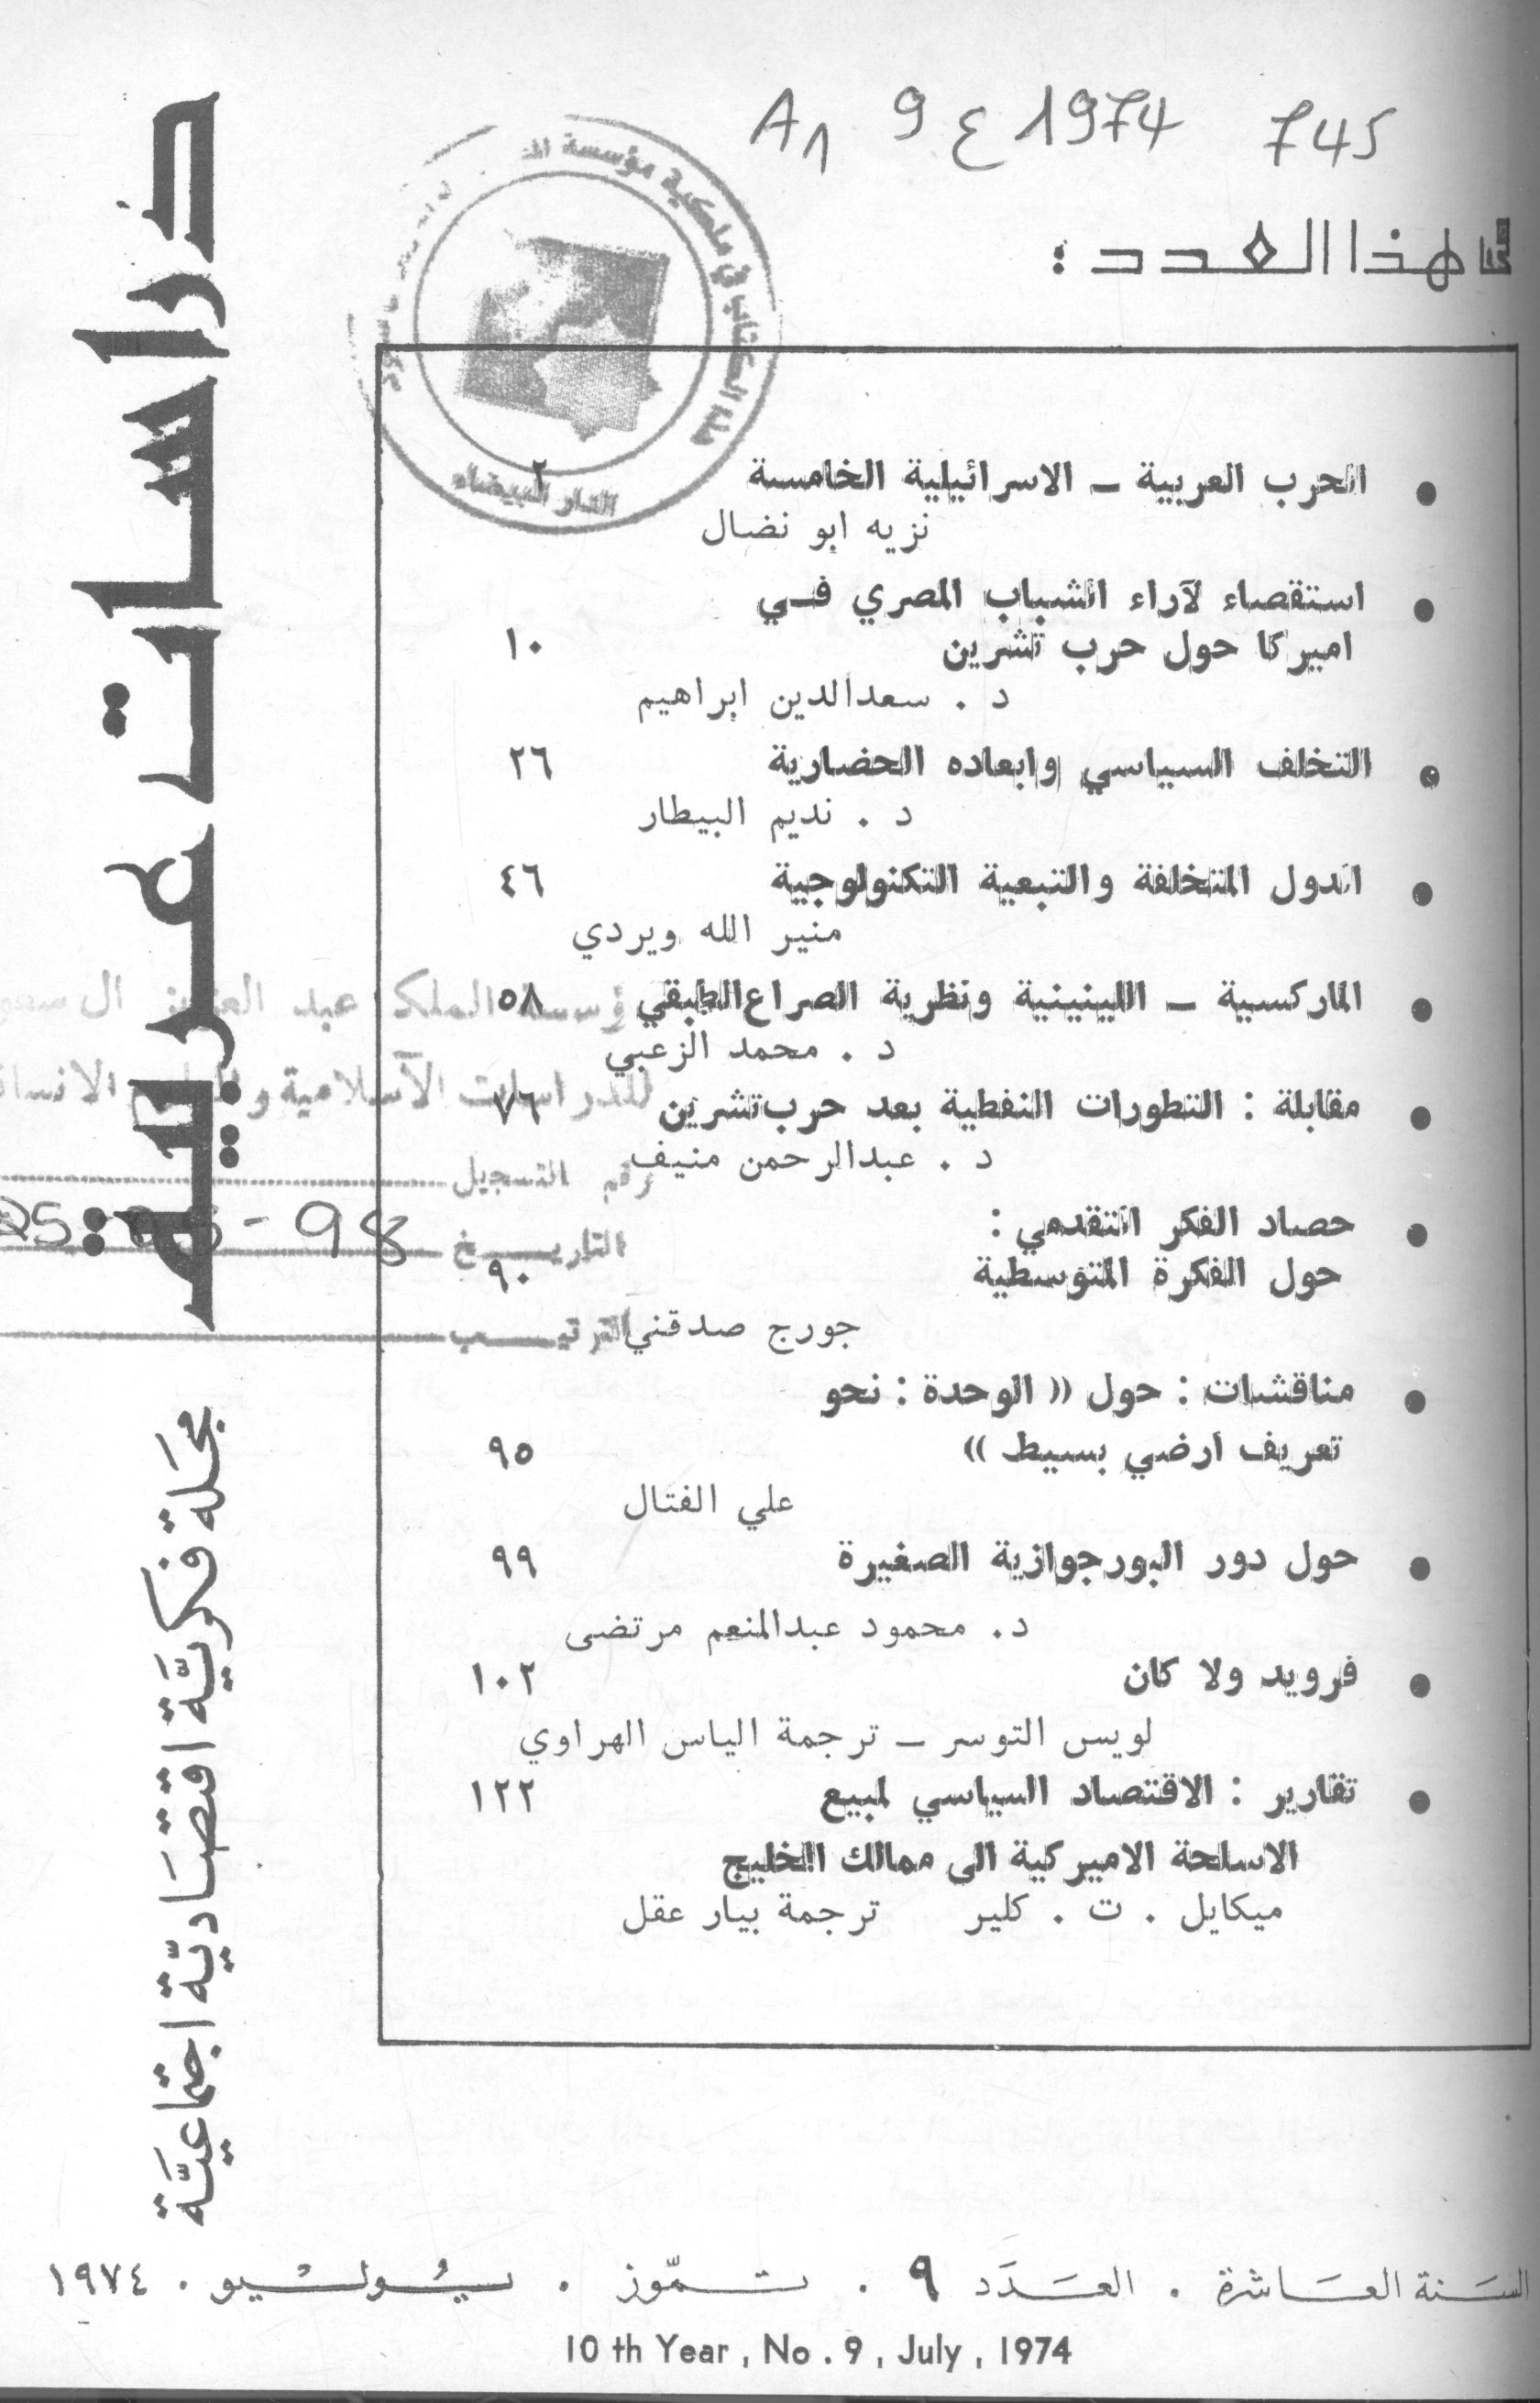 A1 9 ع 1974 745
في هذا العدد :
هذا الكتاب في ملكية مؤسسة
الدار البيضاء
دراسات عربية
مجلة فكرية اقتصادية اجتماعية
● الحرب العربية ـ الاسرائيلية الخامسة ٢
نزيه ابو نضال
● استقصاء لآراء الشباب المصري فـي
اميركا حول حرب تشرين ١٠
د . سعدالدين ابراهيم
● التخلف السياسي وابعاده الحضارية ٢٦
د . نديم البيطار
● الدول المتخلفة والتبعية التكنولوجية ٤٦
منير الله ويردي
● الماركسية ـ اللينينية ونظرية الصراع الطبقي ٥٨
مؤسسة الملك عبد العزيز ال سعود
د . محمد الزعبي
للدراسات الاسلامية والعلوم الانسانية
● مقابلة : التطورات النفطية بعد حرب تشرين ٧٦
د . عبدالرحمن منيف
رقم التسجيل
● حصاد الفكر التقدمي :
التاريخ 98 -
حول الفكرة المتوسطية ٩٠
جورج صدقني
الترتيب
● مناقشات : حول « الوحدة : نحو
تعريف ارضي بسيط » ٩٥
علي الفتال
● حول دور البورجوازية الصغيرة ٩٩
د. محمود عبدالمنعم مرتضى
● فرويد ولا كان ١٠٢
لويس التوسر ـ ترجمة الياس الهراوي
● تقارير : الاقتصاد السياسي لمبيع ١٢٢
الاسلحة الاميركية الى ممالك الخليج
ميكايل . ت . كلير ترجمة بيار عقل
السنة العاشرة . العدد ٩ . تموز . يوليو . ١٩٧٤
10 th Year , No . 9 , July , 1974